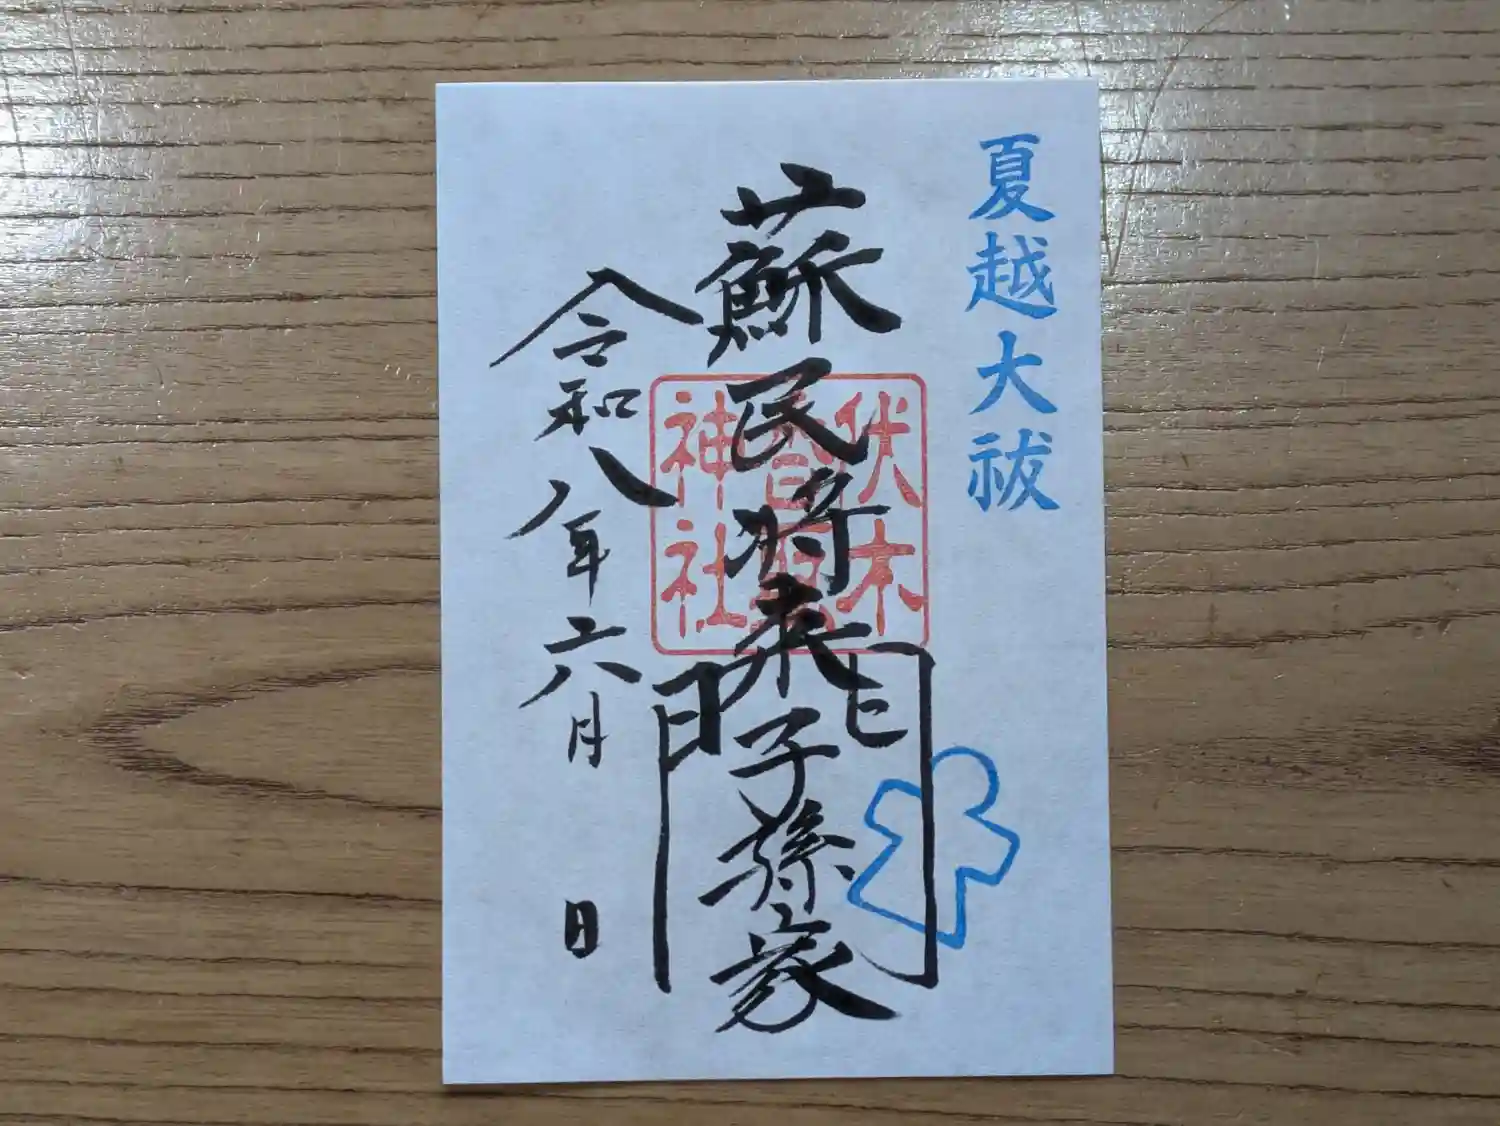 夏越大祓
蘇民将来子孫家門
伏木
香取
神社
令和八年六月 日